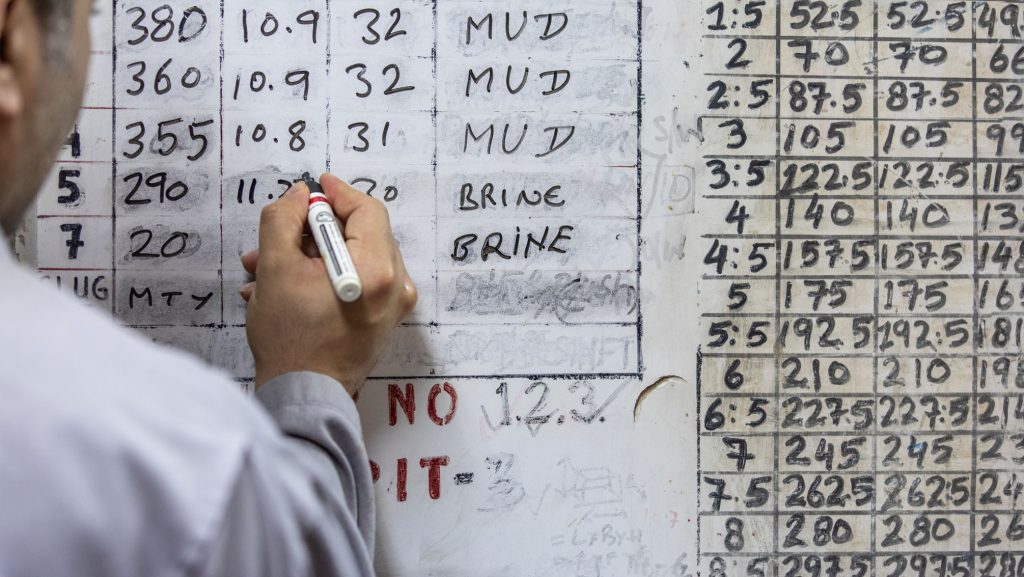 380 10.9 32 MUD
360 10.9 32 MUD
355 10.8 31 MUD
5 290 30 BRINE
7 20 BRINE
SLUG MTY
NO 1.2.3.
PIT-3
1:5 52.5 52.5
2 70 70
2:5 87.5 87.5
3 105 105
3:5 122.5 122.5
4 140 140
4:5 157.5 157.5
5 175 175
5:5 192.5 192.5
6 210 210
6:5 227.5 227.5
7 245 245
7.5 262.5 262.5
8 280 280
8:5 297.5 297.5